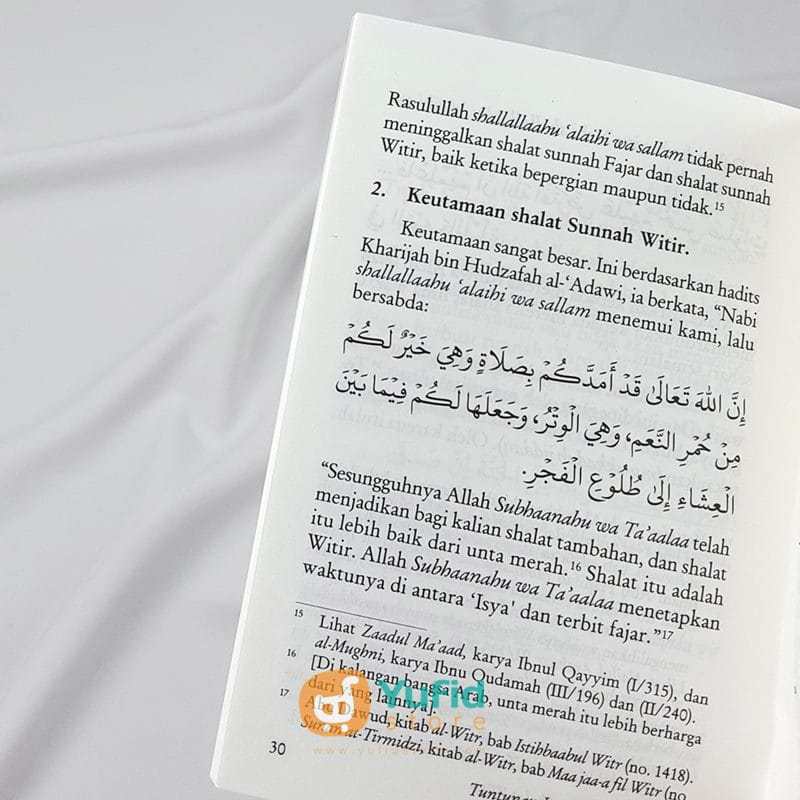 Rasulullah shallallaahu ‘alaihi wa sallam tidak pernah
meninggalkan shalat sunnah Fajar dan shalat sunnah
Witir, baik ketika bepergian maupun tidak.15
2. Keutamaan shalat Sunnah Witir.
Keutamaan sangat besar. Ini berdasarkan hadits
Kharijah bin Hudzafah al-‘Adawi, ia berkata, “Nabi
shallallaahu ‘alaihi wa sallam menemui kami, lalu
bersabda:
إِنَّ اللهَ تَعَالَى قَدْ أَمَدَّكُمْ بِصَلَاةٍ وَهِيَ خَيْرٌ لَكُمْ
مِنْ حُمْرِ النَّعَمِ، وَهِيَ الْوِتْرُ، وَجَعَلَهَا لَكُمْ فِيْمَا بَيْنَ
الْعِشَاءِ إِلَى طُلُوْعِ الْفَجْرِ.
“Sesungguhnya Allah Subhaanahu wa Ta’aalaa telah
menjadikan bagi kalian shalat tambahan, dan shalat
itu lebih baik dari unta merah.16 Shalat itu adalah
Witir. Allah Subhaanahu wa Ta’aalaa menetapkan
waktunya di antara ‘Isya' dan terbit fajar.”17
15 Lihat Zaadul Ma’aad, karya Ibnul Qayyim (I/315), dan
al-Mughni, karya Ibnu Qudamah (III/196) dan (II/240).
16 [Di kalangan bangsa Arab, unta merah itu lebih berharga
dari yang lainnya].
17 Abu Dawud, kitab al-Witr, bab Istihbaabul Witr (no. 1418).
Sunan at-Tirmidzi, kitab al-Witr, bab Maa jaa-a fil Witr (no
30
Yufid
store